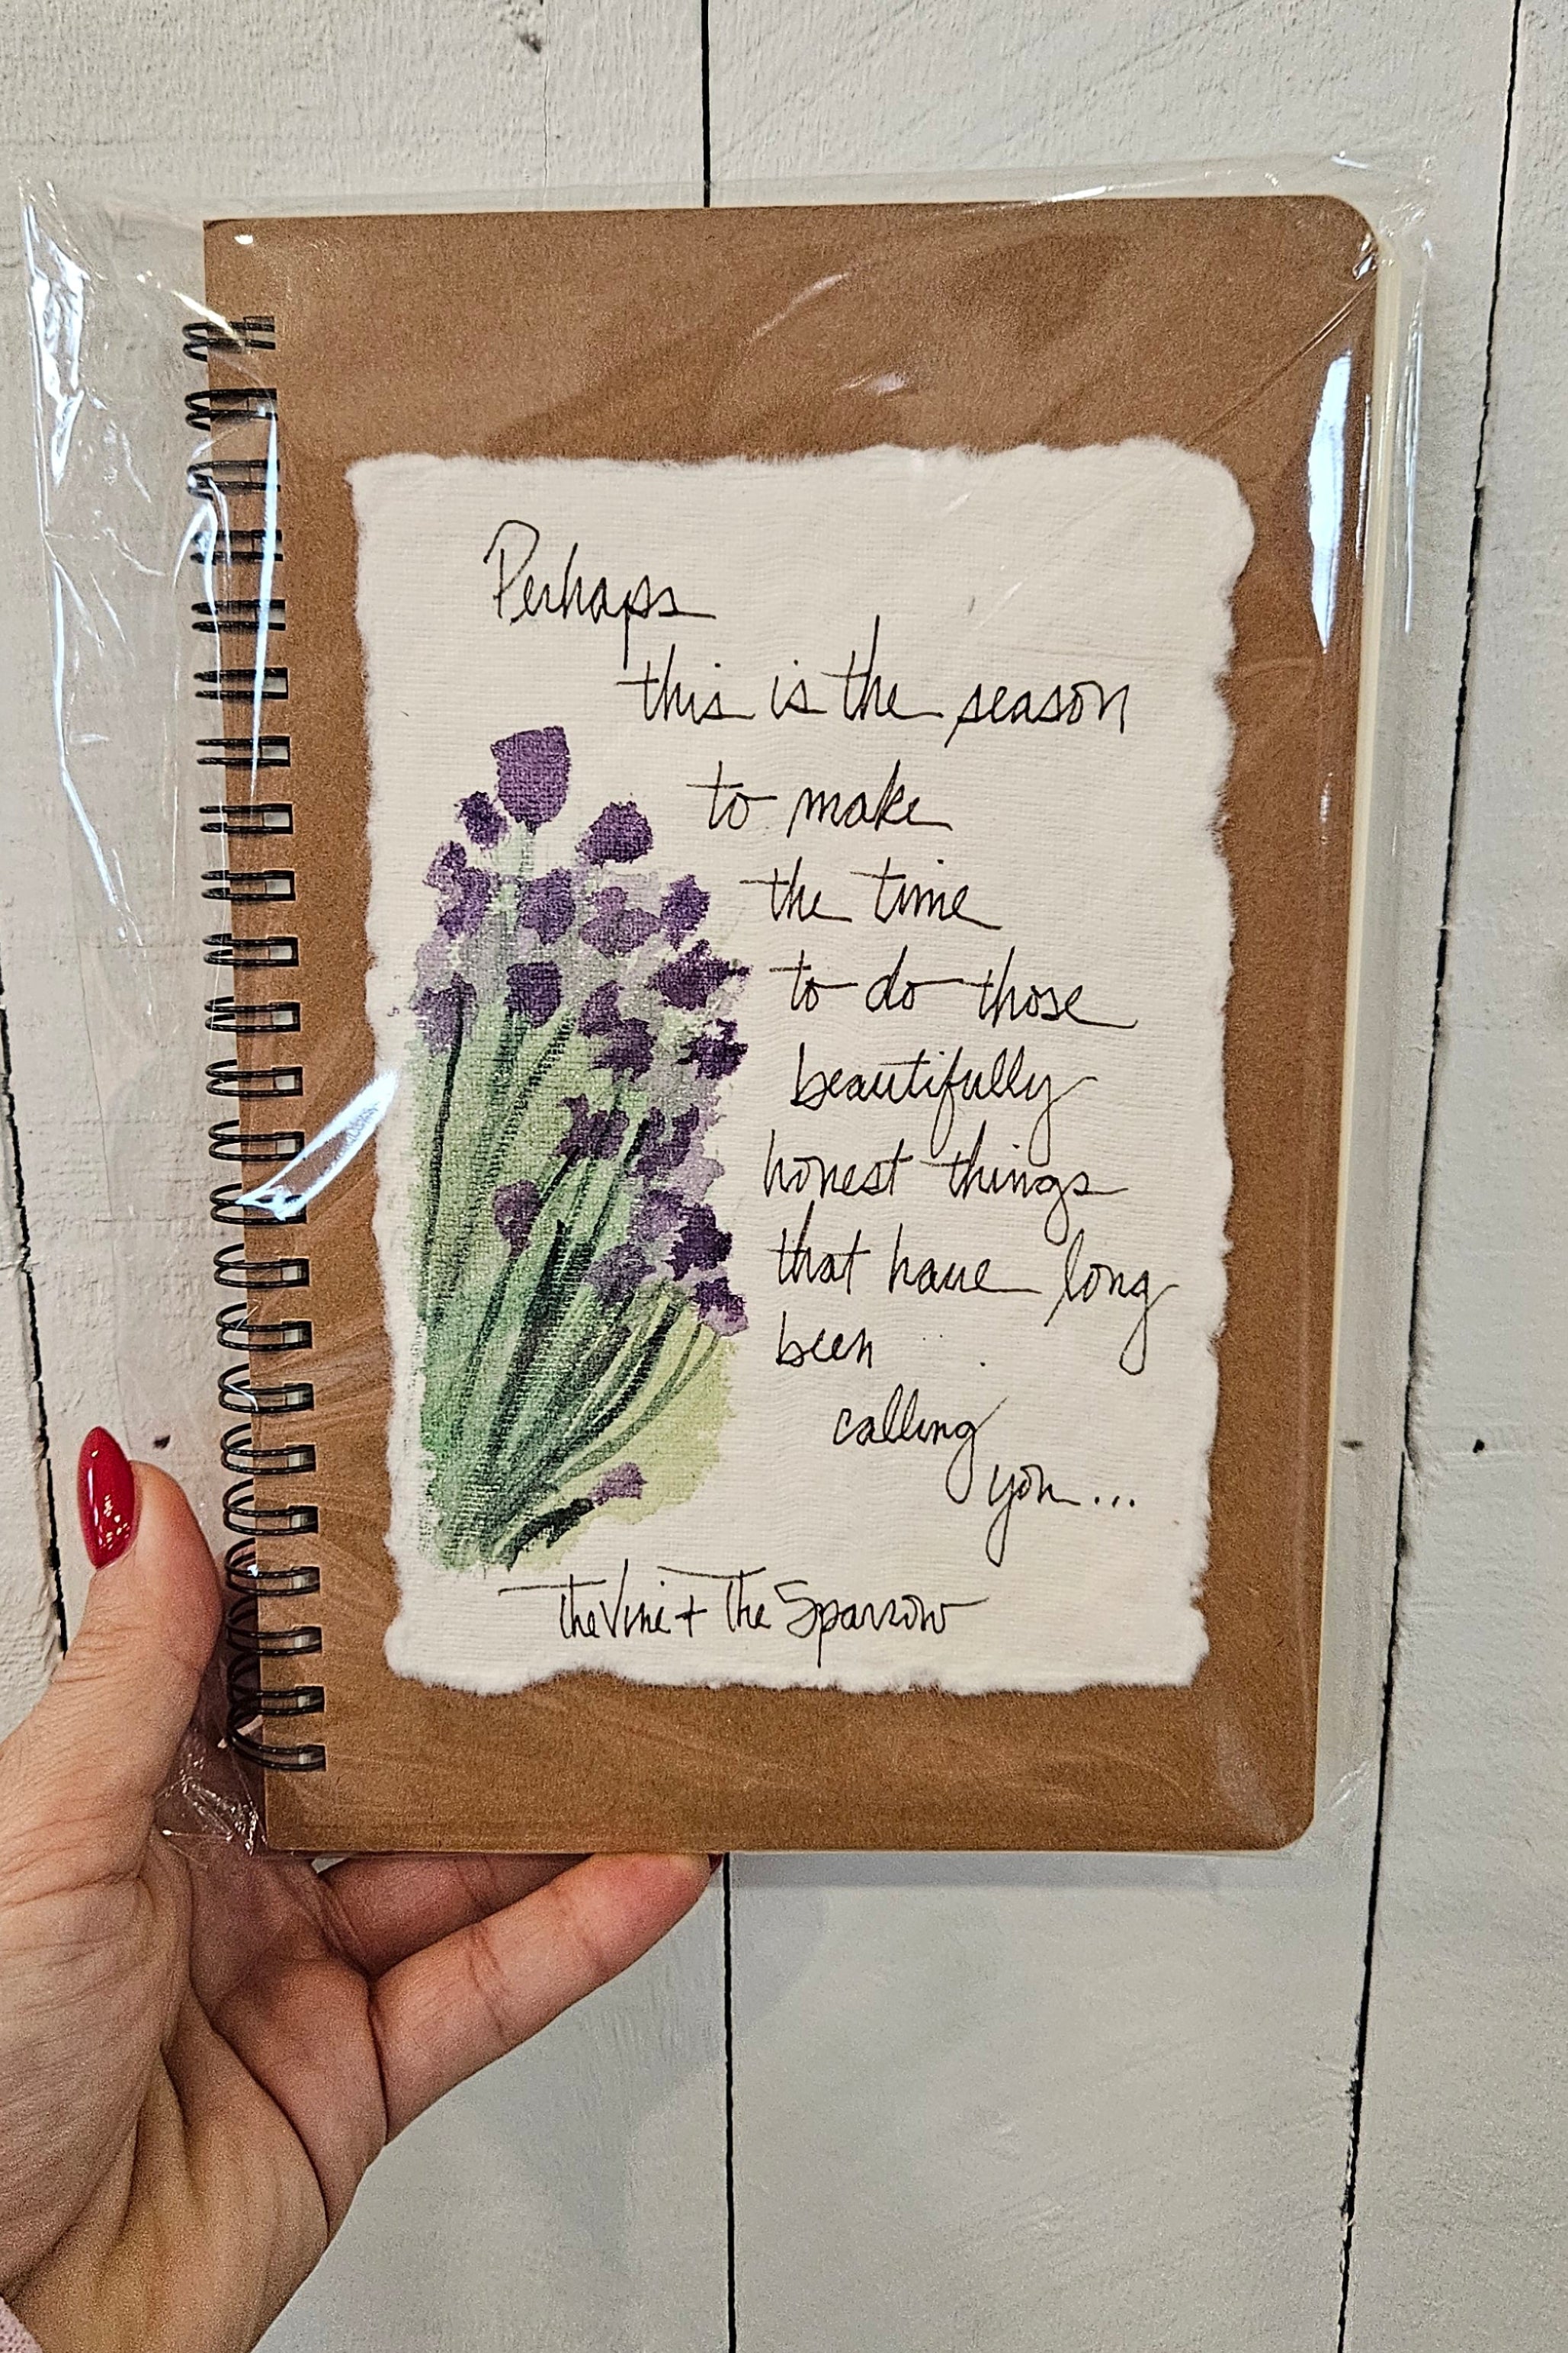 Perhaps
this is the season
to make
the time
to do those
beautifully
honest things
that have long
been
calling
you...
The Vine + The Sparrow